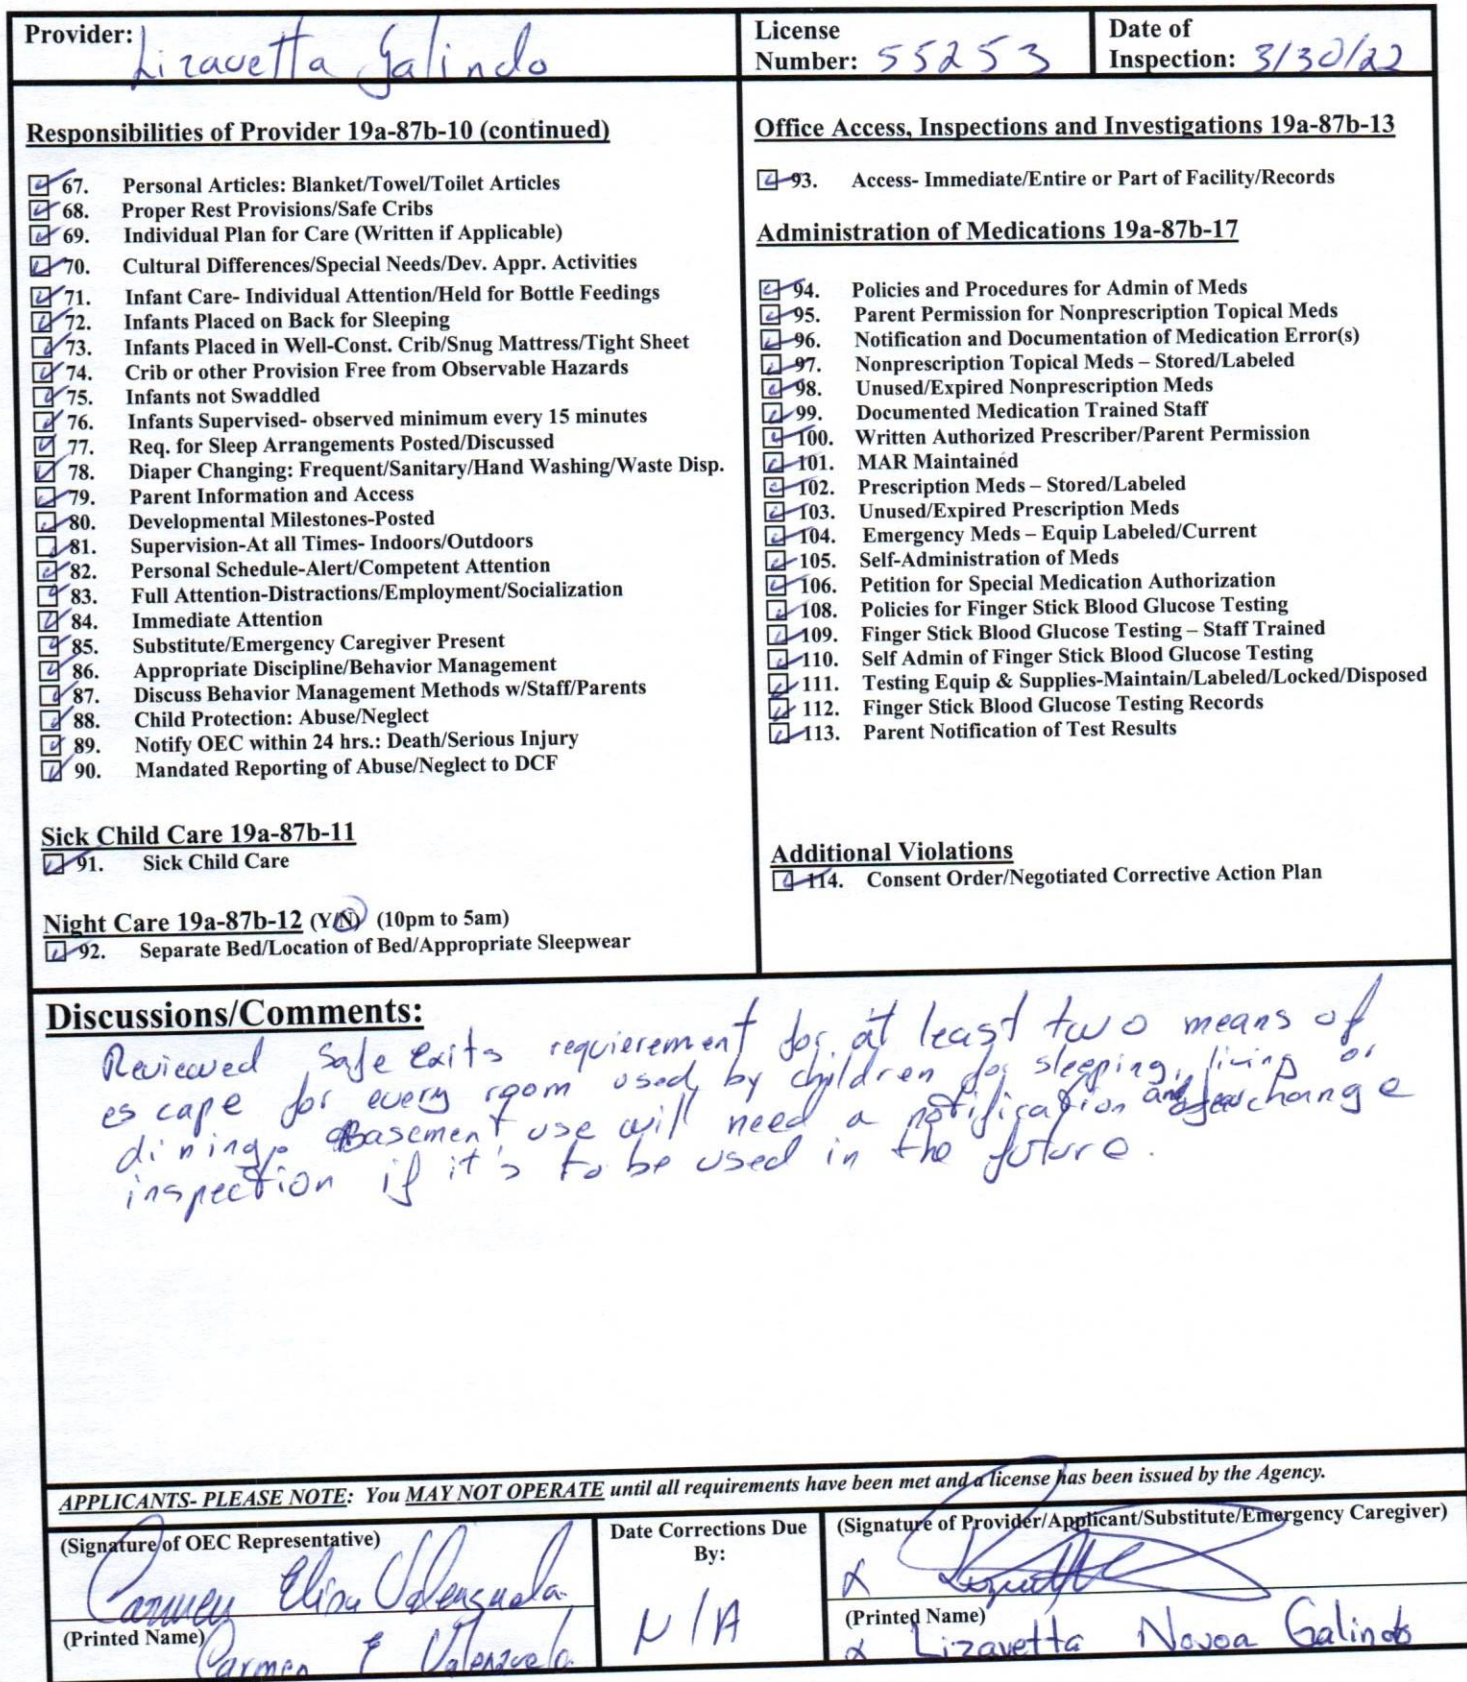 Provider: Lizavetta Galindo
License Number: 55253
Date of Inspection: 3/30/22
Responsibilities of Provider 19a-87b-10 (continued)
67. Personal Articles: Blanket/Towel/Toilet Articles
68. Proper Rest Provisions/Safe Cribs
69. Individual Plan for Care (Written if Applicable)
70. Cultural Differences/Special Needs/Dev. Appr. Activities
71. Infant Care- Individual Attention/Held for Bottle Feedings
72. Infants Placed on Back for Sleeping
73. Infants Placed in Well-Const. Crib/Snug Mattress/Tight Sheet
74. Crib or other Provision Free from Observable Hazards
75. Infants not Swaddled
76. Infants Supervised- observed minimum every 15 minutes
77. Req. for Sleep Arrangements Posted/Discussed
78. Diaper Changing: Frequent/Sanitary/Hand Washing/Waste Disp.
79. Parent Information and Access
80. Developmental Milestones-Posted
81. Supervision-At all Times- Indoors/Outdoors
82. Personal Schedule-Alert/Competent Attention
83. Full Attention-Distractions/Employment/Socialization
84. Immediate Attention
85. Substitute/Emergency Caregiver Present
86. Appropriate Discipline/Behavior Management
87. Discuss Behavior Management Methods w/Staff/Parents
88. Child Protection: Abuse/Neglect
89. Notify OEC within 24 hrs.: Death/Serious Injury
90. Mandated Reporting of Abuse/Neglect to DCF
Sick Child Care 19a-87b-11
91. Sick Child Care
Night Care 19a-87b-12 (Y/N) (10pm to 5am)
92. Separate Bed/Location of Bed/Appropriate Sleepwear
Office Access, Inspections and Investigations 19a-87b-13
93. Access- Immediate/Entire or Part of Facility/Records
Administration of Medications 19a-87b-17
94. Policies and Procedures for Admin of Meds
95. Parent Permission for Nonprescription Topical Meds
96. Notification and Documentation of Medication Error(s)
97. Nonprescription Topical Meds – Stored/Labeled
98. Unused/Expired Nonprescription Meds
99. Documented Medication Trained Staff
100. Written Authorized Prescriber/Parent Permission
101. MAR Maintained
102. Prescription Meds – Stored/Labeled
103. Unused/Expired Prescription Meds
104. Emergency Meds – Equip Labeled/Current
105. Self-Administration of Meds
106. Petition for Special Medication Authorization
108. Policies for Finger Stick Blood Glucose Testing
109. Finger Stick Blood Glucose Testing – Staff Trained
110. Self Admin of Finger Stick Blood Glucose Testing
111. Testing Equip & Supplies-Maintain/Labeled/Locked/Disposed
112. Finger Stick Blood Glucose Testing Records
113. Parent Notification of Test Results
Additional Violations
114. Consent Order/Negotiated Corrective Action Plan
Discussions/Comments:
Reviewed safe exits requierement for at least two means of
escape for every room used by children for sleeping, living or
dining. Basement use will need a notification and change
inspection if it's to be used in the future.
APPLICANTS- PLEASE NOTE: You MAY NOT OPERATE until all requirements have been met and a license has been issued by the Agency.
(Signature of OEC Representative)
Carmen Elisa Valenzuela
(Printed Name)
Carmen E Valenzuela
Date Corrections Due
By:
N/A
(Signature of Provider/Applicant/Substitute/Emergency Caregiver)
x
(Printed Name)
x Lizavetta Novoa Galindo